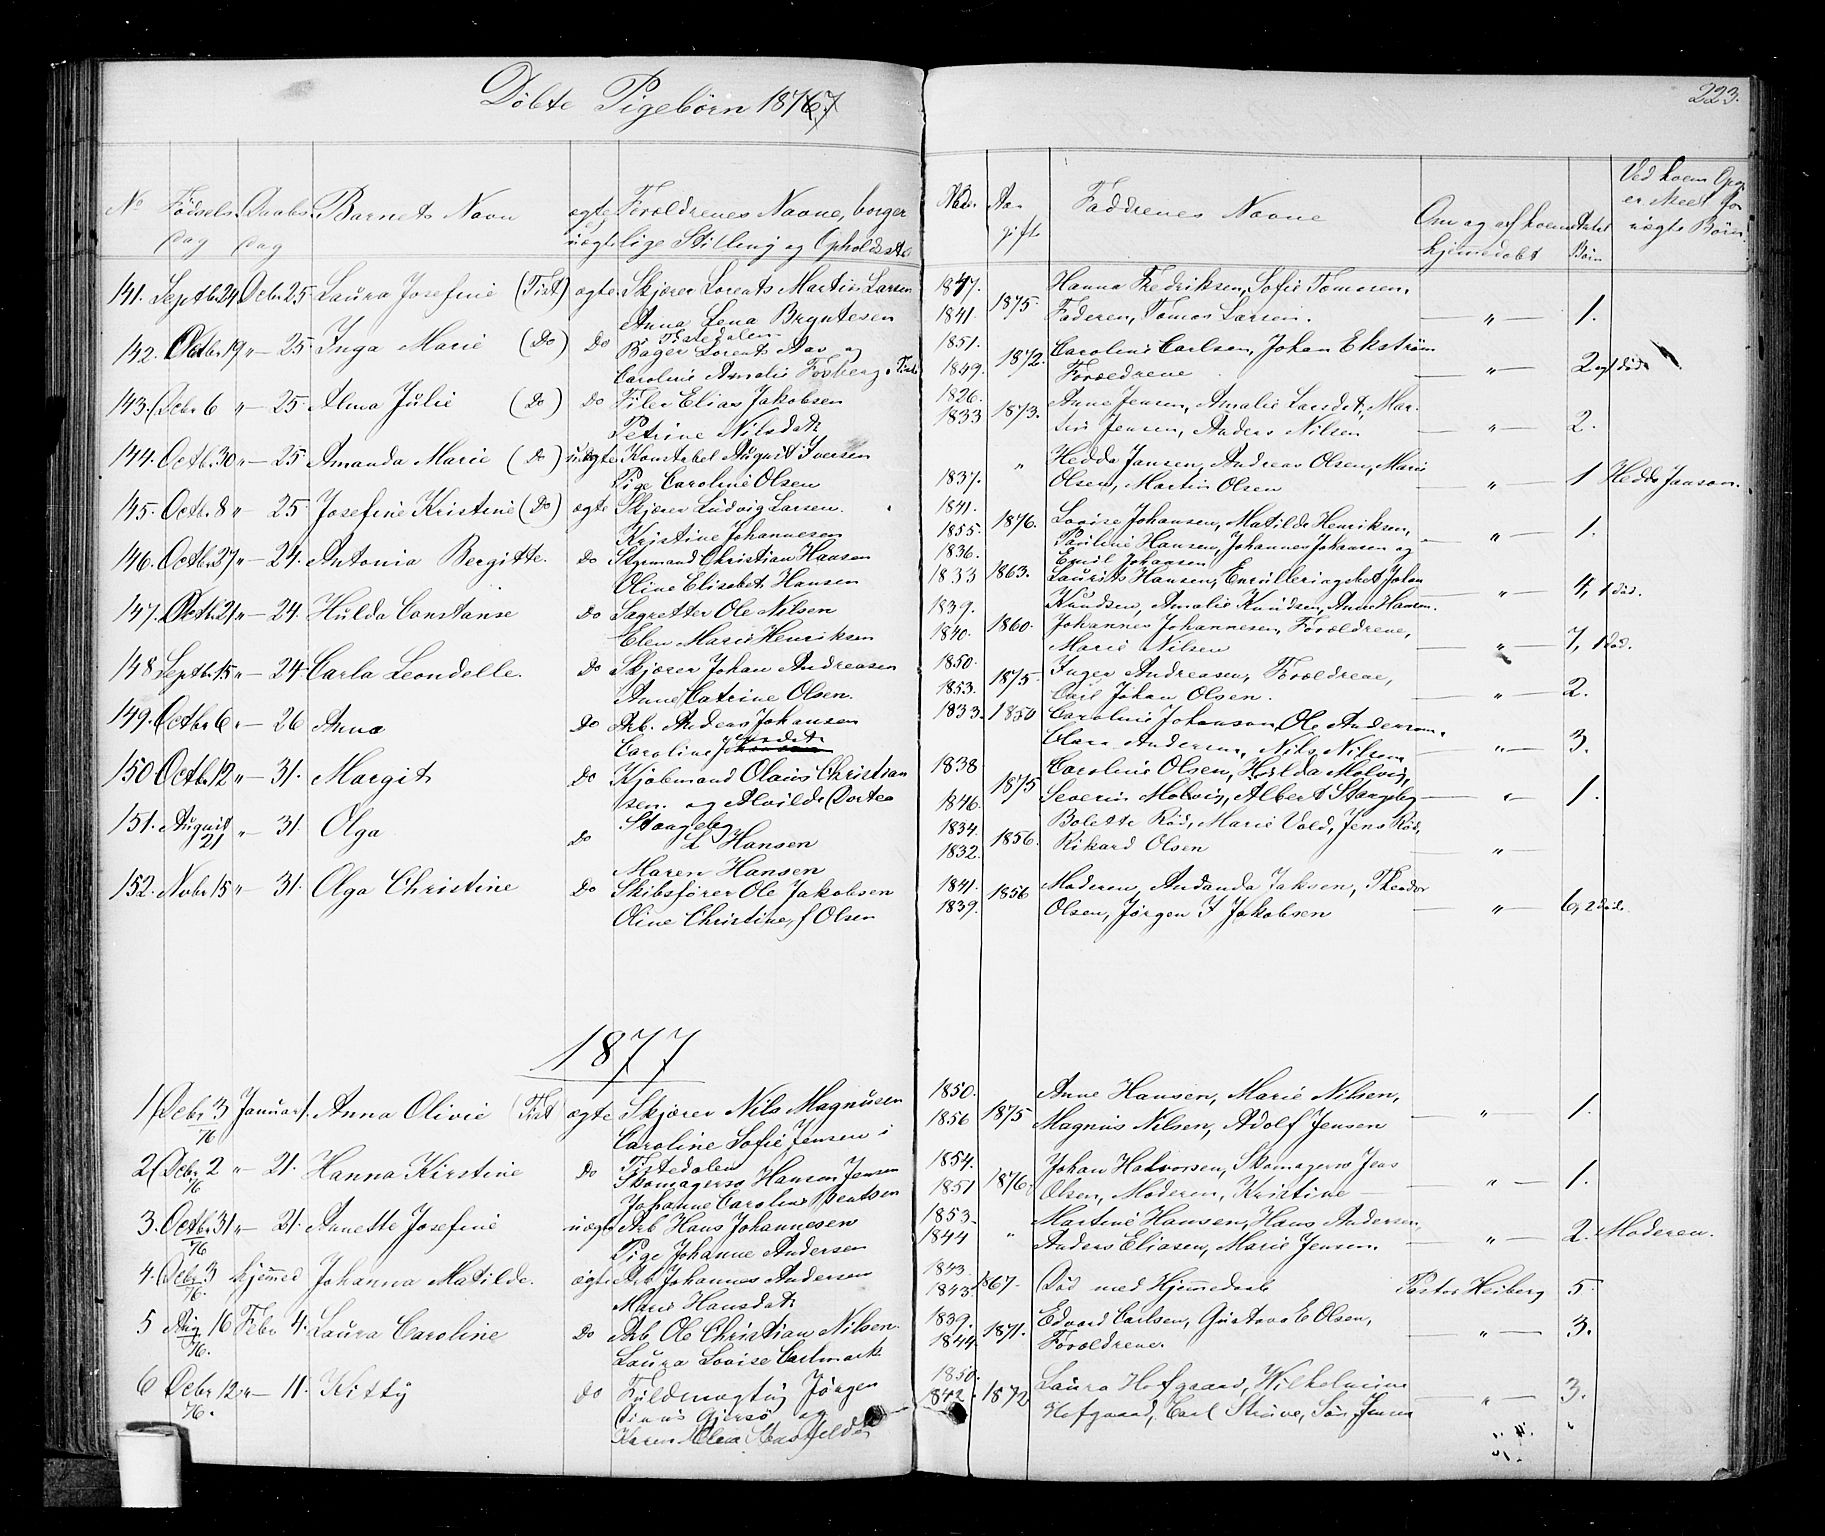 Döbte Pigebörn 1876/7
223.
No Fødsels Dag Daabs Dag Barnets Navn ægte uægte Foræld­renes Navne, borgerlige Stilling og Opholdsste
Alder Aar gift Faddrenes Navne Om og af hvem hjemmedøbt Antal Børn Ved hvem er meldt for uægte Børn
141. Septbr 24 Dcbr 25 Laura Josefine (Tist) ægte Skjærer Lorents Martin Larsen
Anna Lena Bryntesen
Tistedalen
1847. 1841 1875. Hanna Fredriksen, Sofie Tomesen,
Faderen, Tomas Larsen. — " — 1.
142. Octbr 19 " — 25 Inga Marie (Do) Do Bager Lorents Aas og
Caroline Amalie Forberg, Tist
1851. 1849. 1872. Caroline Carlsen, Johan Ekstrøm
Forældrene — " — 2 og 1 død
143. Dcbr 6 " — 25. Alma Julie (Do) Do Filer Elias Jakobsen
Petrine Nilsdatr
1826. 1833 1873. Anne Jensen, Amalie Larsdat, Mar-
tin Jensen, Anders Nilsen — " — 2.
144. Octbr 30 " — 25 Amanda Marie (Do) uægte Konstabel August Iversen
Pige Caroline Olsen
1837. " Hedda Jansen, Andreas Olsen, Marie
Olsen, Martin Olsen — " — 1 Hedda Janson.
145. Octbr 8 " — 25 Josefine Kristine (Do) ægte Skjærer Ludvig Larsen.
Kristine Johannesen
1841. 1855. 1876. Lovise Johansen, Matilde Henriksen,
Pauline Hansen, Johannes Johansen og
Emil Johansen — " — 1.
146. Octbr 27 " — 24. Antonia Bergitte. Do Styrmand Christian Hansen
Oline Elisabet Hansen
1836. 1833 1863. Laurits Hansen, Johan
Knudsen, Amalie Knudsen, Anne Hansen. — " — 4, 1 død.
147. Octbr 21 " — 24. Hulda Constanse Do Sagretter Ole Nilsen
Elen Marie Henriksen
1839. 1840. 1860. Johannes Johannesen, Forældrene,
Marie Nilsen — " — 7, 1 død.
148 Septbr 15 " — 24. Carla Leondelle. Do Skjærer Johan Andreasen
Anne Catrine Olsen.
1850. 1853. 1875. Inger Andreasen, Forældrene,
Carl Johan Olsen. — " — 2.
149. Octbr 6 " — 26 Anna Do Arb. Anders Johansen
Caroline Johansen
1833. 1850 Caroline Johanson, Ole Anderson,
Clara Andersen, Nils Nilsen — " — 3.
150 Octbr 12 " — 31. Margit Do Kjøbmand Olaus Christian
sen. og Alvilde Dortea
Stangebg
1838 1846. 1875 Caroline Olsen, Hulda Molvig,
Severin Molvig, Albert Stangebg — " — 1.
151. August 21 " — 31. Olga Do L Hansen
Maren Hansen
1834. 1832. 1856. Bolette Rød, Marie Vold, Jens Rød,
Rikard Olsen — " —
152. Novbr 15 " — 31. Olga Christine Do Skibsfører Ole Jakobsen
Oline Christine, f Olsen
1841. 1839. 1856 Moderen, Andanda Jaksen, Theodor
Olsen, Jørgen J Jakobsen — " — 6, 2 død.
1877
1 Dcbr 3/76 Januar 1. Anna Olivie (Tist) ægte Skjærer Nils Magnusen
Caroline Sofie Jensen i
Tistedalen
1850. 1856 1875 Anne Hansen, Marie Nilsen,
Magnus Nilsen, Adolf Jensen — " — 1.
2 Dcbr 2/76 " — 21. Hanna Kirstine Do Skomagersv Hanson Jensen
Johanne Caroline Bentsen
1854. 1851 1876. Johan Halvorsen, Skomagersv Jens
Olsen, Moderen, Kristine — — " — 1.
3. Octbr 31/76 " — 21. Annette Josefine uægte Arb Hans Johannesen
Pige Johanne Andersen
1853. 1844 " Martine Hansen, Hans Andersen,
Anders Eliasen, Marie Jensen. — " — 2. Moderen.
4. Dcbr 3/76. hjemmed Johanna Matilde. ægte Arb Johannes Andersen
Marie Hansdatr
1843. 1843. 1867. Død med Hjemmedaab Pastor Heiberg 5.
5 Aug 16/76. Febr 4. Laura Caroline Do Arb Ole Christian Nilsen.
Laura Lovise Carlmark
1839. 1844. 1871. Edvard Carlsen, Gustava E Olsen,
Forældrene. — " — 3.
6 Dcbr 12/76. " — 11. Kitty Do Fuldmægtig Jørgen
Dinus Gjersø og
Karen Alea
1850. 1842. 1872 Laura Hofgaard, Wilhelmine
Hofgaard, Carl Struve, Jensen — " — 3.